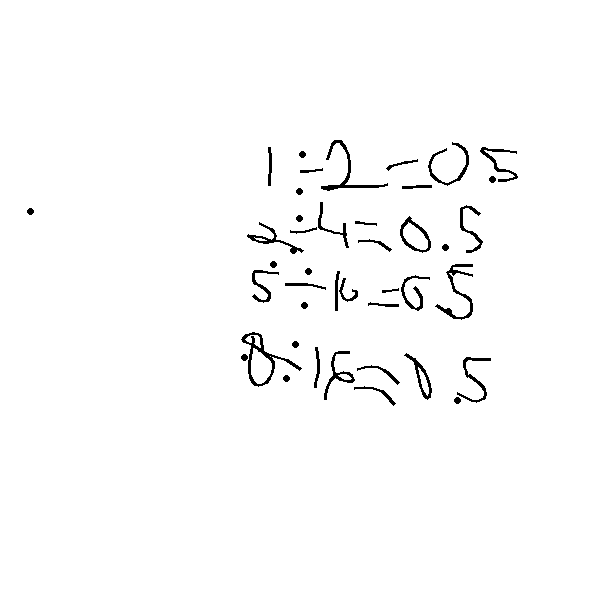 1÷2=0.5
2÷4=0.5
5÷10=0.5
8÷16=0.5